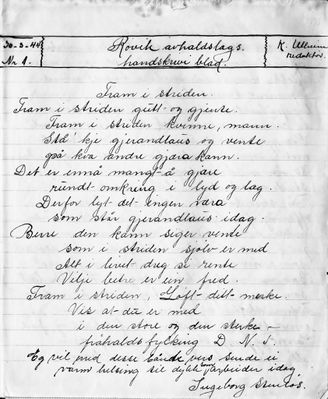 30-3-44
Nr 1.
Rovik avhaldslags.
handskrevi blad.
K. Ulltun
redaktør.
Fram i striden.
Fram i striden gutt- og gjente.
Fram i striden kvinne, mann.
Stå' kje gjerandlaus og vente
på kva andre gjæra kann.
Det er ennå mangt å gjære
rundt omkring i lyd og lag.
Derfor lyt det ingen væra
som står gjerandlaus idag.
Berre den kann siger vende
som i striden sjølv er med
Alt i livet dreg si rente
Vilje betre er enn fred.
Fram i striden, Løft ditt merke.
Vis at du er med
i den store og den sterke
fråhaldsfylking D. N. T.
Eg vil med desse vers sende ei
varm helsing til arbeider idag.
Ingeborg